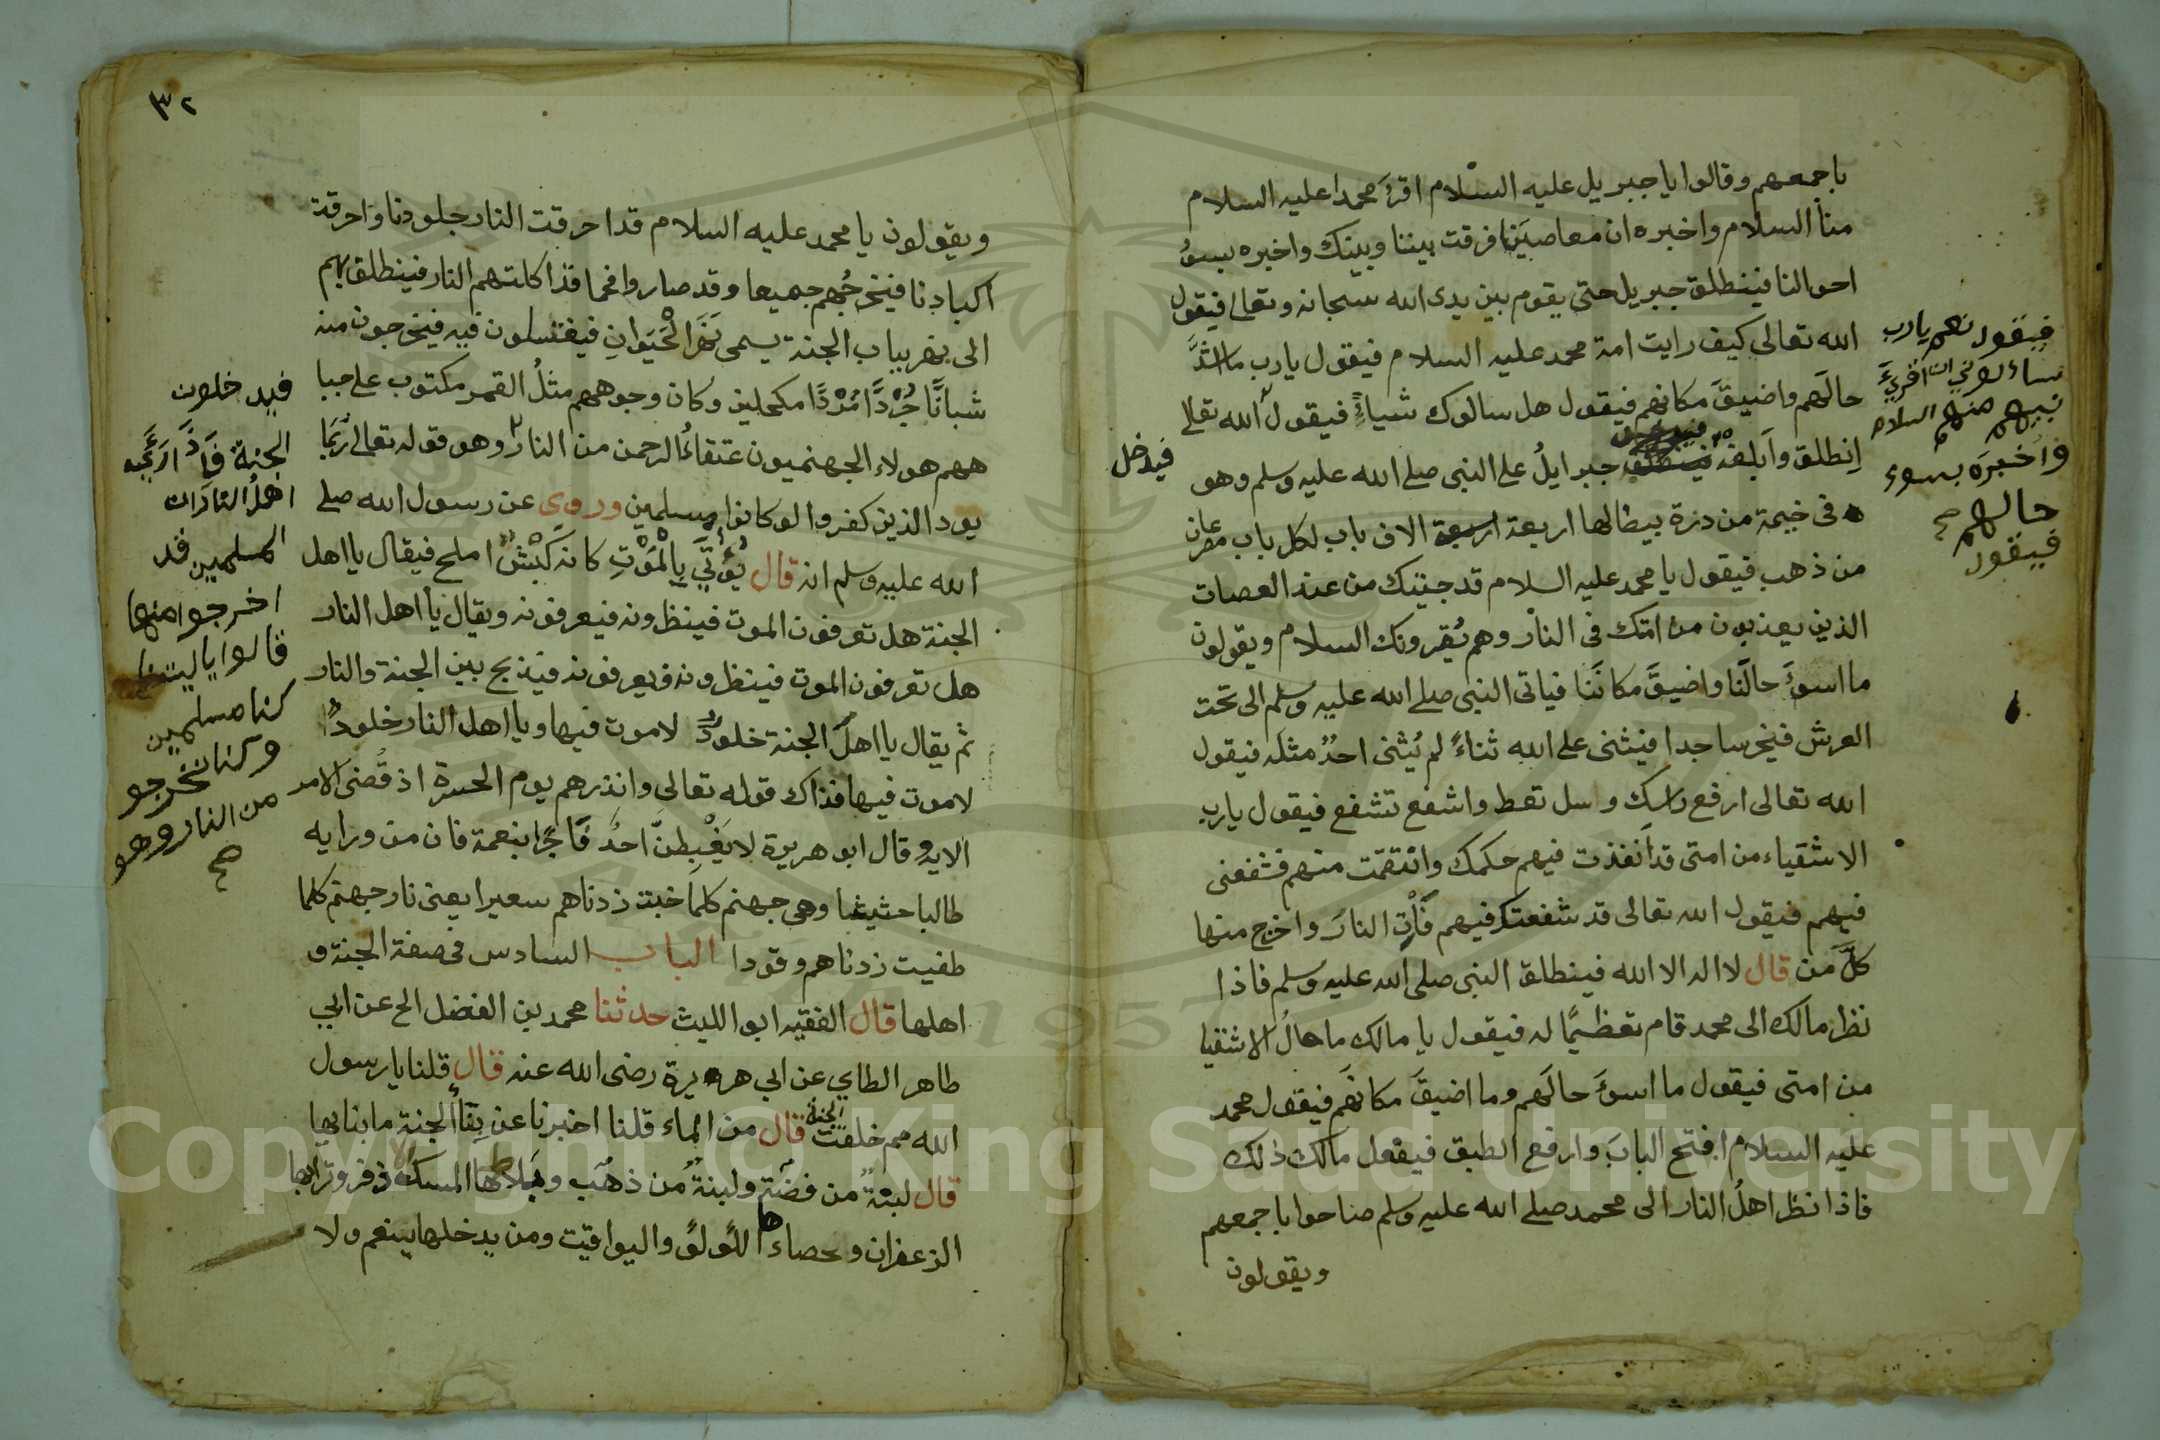 باجمعهم وقالوا يا جبريل عليه السلام اقرء محمدا عليه السلام
منا السلام واخبره ان معاصينا فرقت بيننا وبينك واخبره بسوء
احوالنا فينطلق جبريل حتى يقوم بين يدى الله سبحانه وتعالى فيقول
الله تعالى كيف رايت امة محمد عليه السلام فيقول يارب ما اشد
حالهم واضيق مكانهم فيقول هل سالوك شياء فيقول الله تعالى
انطلق وابلغه جبرايل على النبى صلى الله عليه وسلم وهو
فى خيمة من درة بيضا لها اربعة الاف باب لكل باب مصرعان
من ذهب فيقول يا محمد عليه السلام قد جيتك من عند العصات
الذين يعذبون من امتك فى النار وهم يقرونك السلام ويقولون
ما اسوء حالنا واضيق مكاننا فياتى النبى صلى الله عليه وسلم الى تحت
العرش فيخر ساجدا فيثنى على الله ثناء لم يثنى احد مثله فيقول
الله تعالى ارفع راسك وسل تعط واشفع تشفع فيقول يارب
الاشقياء من امتى قد انفذت فيهم حكمك وانتقمت منهم فشفعنى
فيهم فيقول الله تعالى قد شفعتك فيهم فأت النار واخرج منها
كل من قال لا اله الا الله فينطلق النبى صلى الله عليه وسلم فاذا
نظر مالك الى محمد قام تعظيما له فيقول يا مالك ما حال الاشقيا
من امتى فيقول ما اسوء حالهم وما اضيق مكانهم فيقول محمد
عليه السلام افتح الباب وارفع الطبق فيفعل مالك ذلك
فاذا نظر اهل النار الى محمد صلى الله عليه وسلم صاحوا باجمعهم
ويقولون
فيقول نعم يارب
ساءلونى ان اقرئ
نبيهم منهم السلام
واخبره بسوء
حالهم
صح
فيقول
فيدخل
٣٢
ويقولون يا محمد عليه السلام قد احرقت النار جلودنا واحرقت
اكبادنا فيخرجهم جميعا وقد صاروا فحما قد اكلتهم النار فينطلق بهم
الى نهر بباب الجنة يسمى نهر الحيوان فيغتسلون فيه فيخرجون منه
شبانا جردا مردا مكحلين وكان وجوههم مثل القمر مكتوب على جبا
ههم هولاء الجهنميون عتقاء الرحمن من النار وهو قوله تعالى ربما
يود الذين كفروا لو كانوا مسلمين وروى عن رسول الله صلى
الله عليه وسلم انه قال يؤتى بالموت كانه كبش املح فيقال يا اهل
الجنة هل تعرفون الموت فينظرونه فيعرفونه ويقال يا اهل النار
هل تعرفون الموت فينظرونه فيعرفونه فيذبح بين الجنة والنار
ثم يقال يا اهل الجنة خلود لا موت فيها ويا اهل النار خلود
لا موت فيها فذاك قوله تعالى وانذرهم يوم الحسرة اذ قضى الامر
الايه وقال ابو هريرة لا يغبطن احد فاجرا بنعمة فان من ورايه
طالبا حثيثا وهى جهنم كلما خبت زدناهم سعيرا يعنى نار جهنم كلما
طفيت زدناهم وقودا الباب السادس فى صفة الجنة و
اهلها قال الفقيه ابو الليث حدثنا محمد بن الفضل الخ عن ابي
طاهر الطاي عن ابي هريرة رضى الله عنه قال قلنا يا رسول
الله مم خلقت الجنة قال من الماء قلنا اخبرنا عن بناء الجنة ما بنايها
قال لبنة من فضة ولبنة من ذهب وملاطها المسك الاذفر وترابها
الزعفران وحصاءها اللؤلؤ واليواقيت ومن يدخلها ينعم ولا
فيدخلون
الجنة فاذا راى
اهل النار ان
المسلمين قد
اخرجوا منها
قالوا ياليتنا
كنا مسلمين
وكنا نخرجو
من النار وهو
صح
Copyright © King Saud University
1957